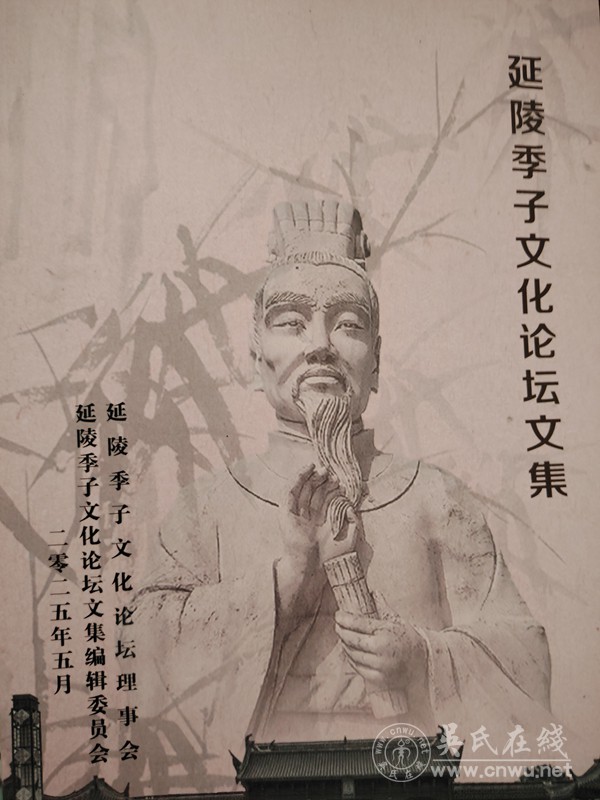 延陵季子文化论坛文集
延陵季子文化论坛理事会
延陵季子文化论坛文集编辑委员会
二零二五年五月
吴氏在线
www.cnwu.net
www.cnwu.net